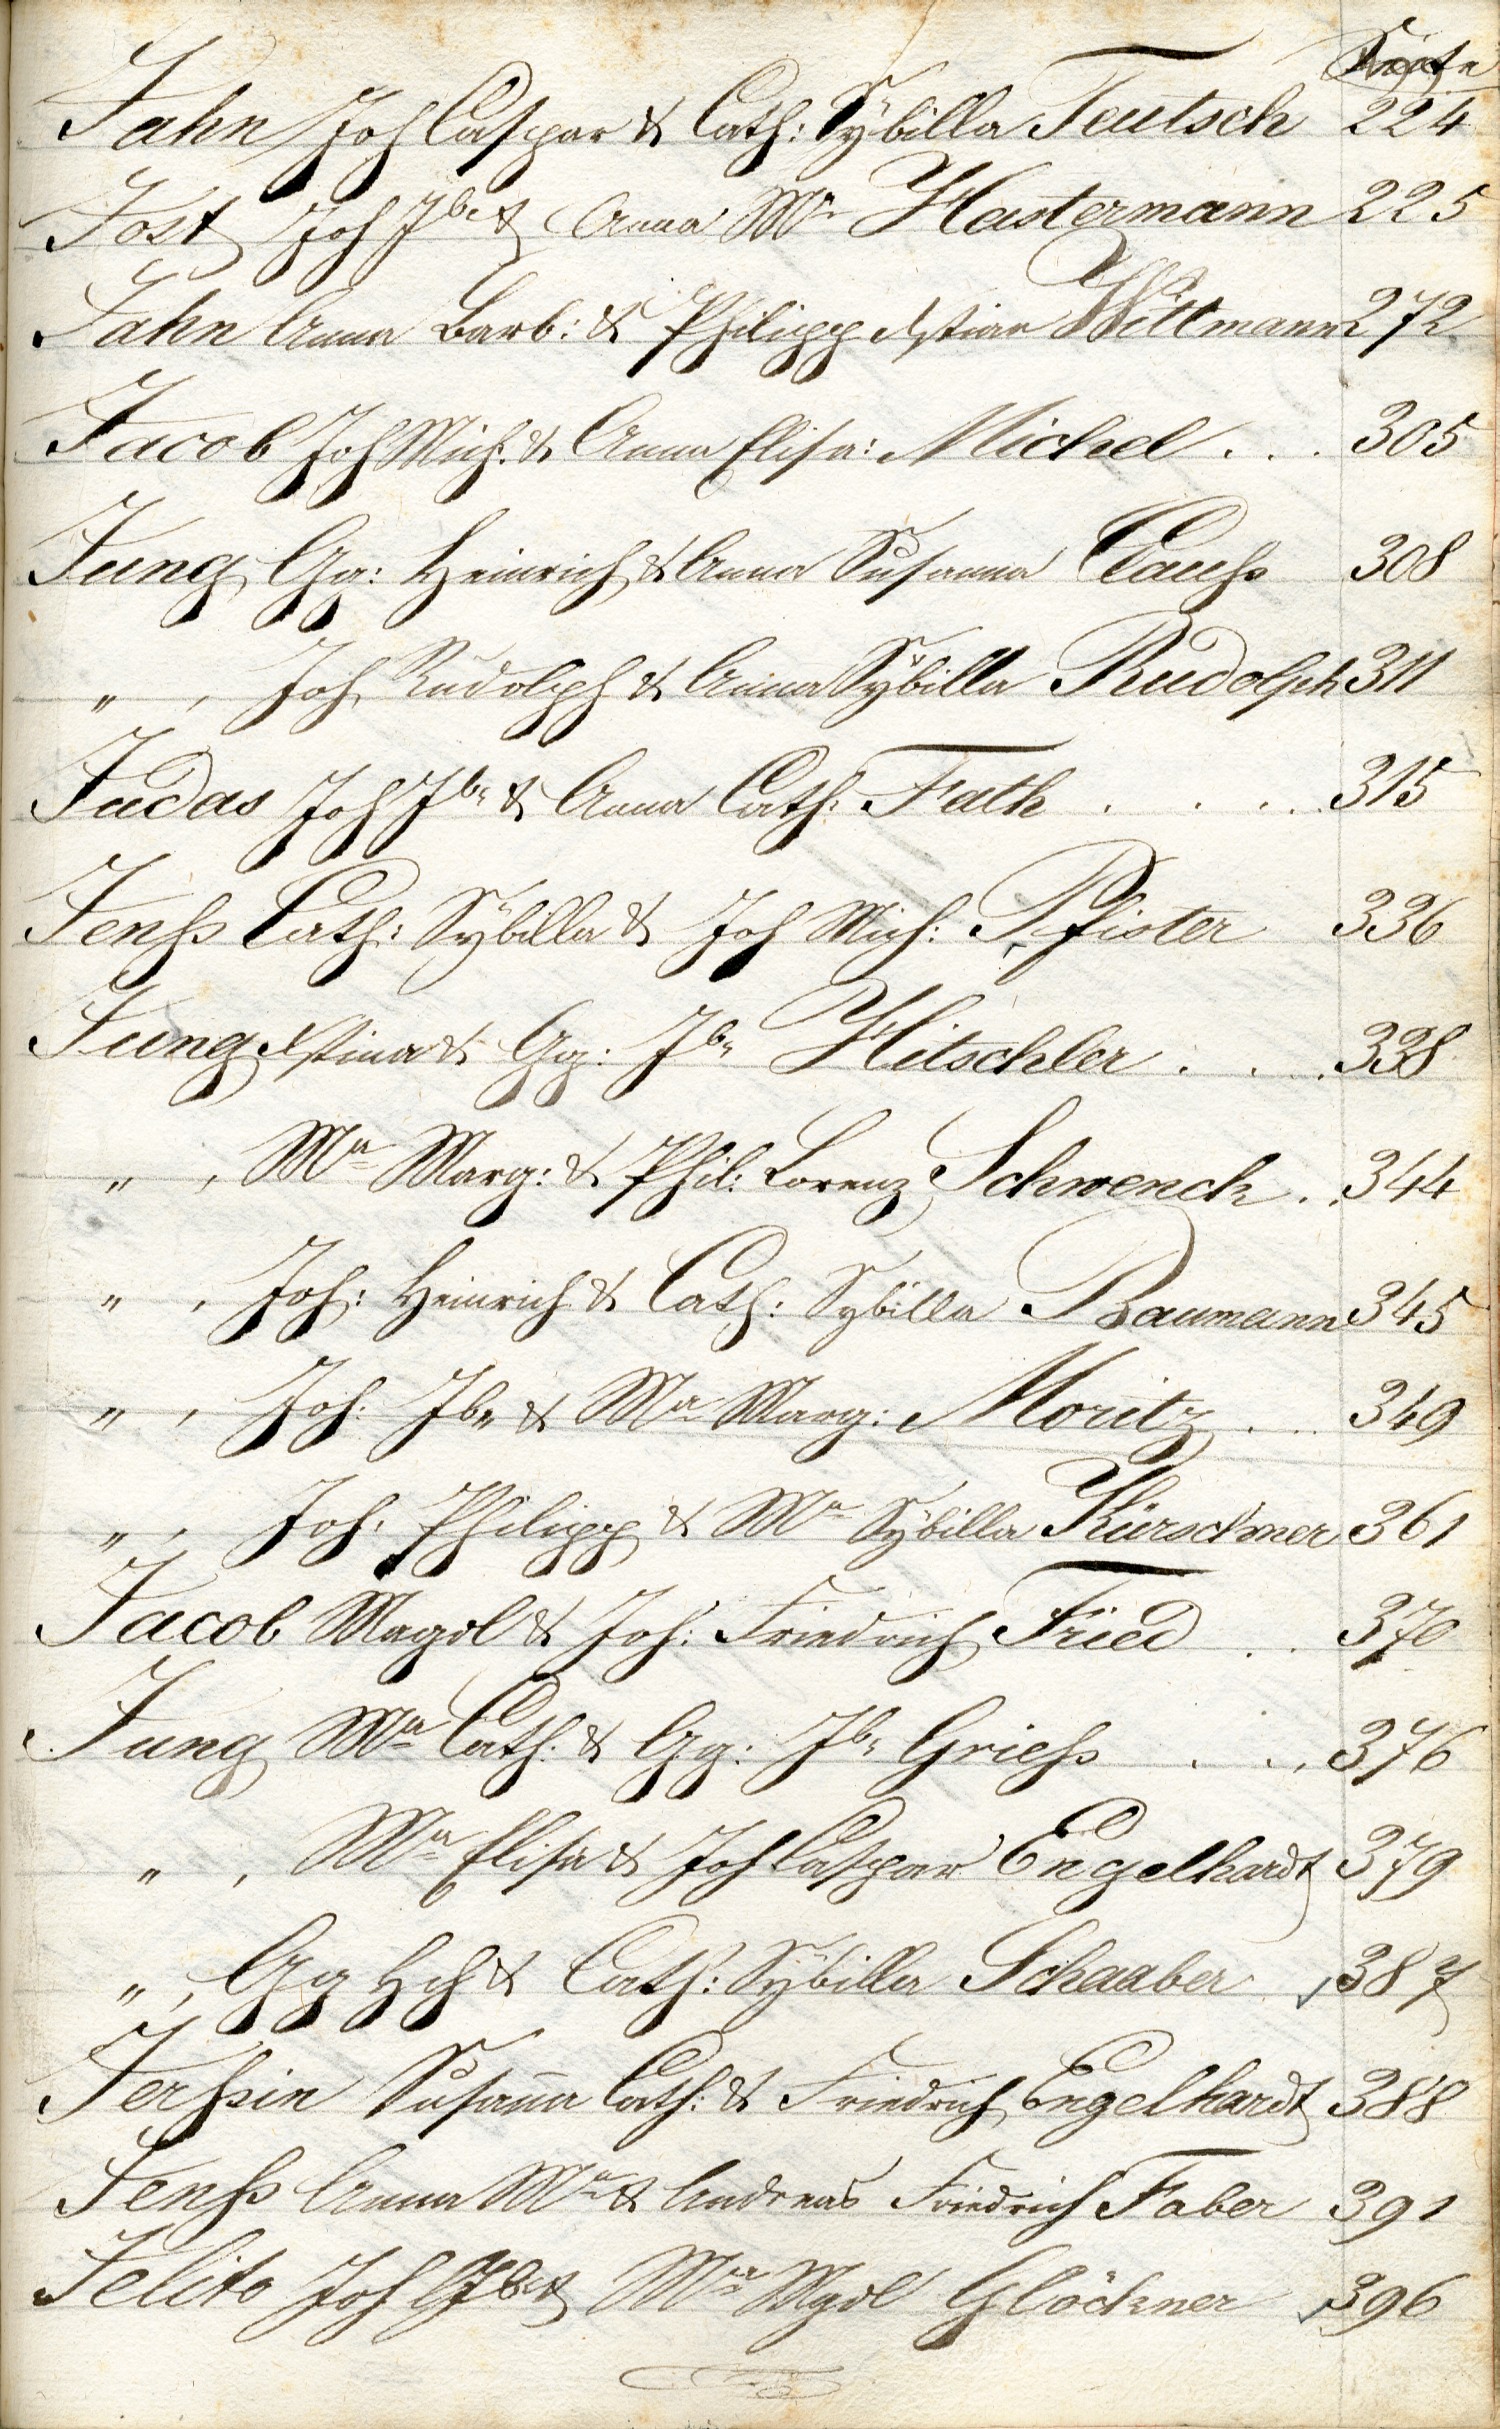 Seite
Jahn Joh Caspar & Cath: Sÿbilla Teutsch 224
Jost Joh Jb. & Anna Ma Hastermann 225
Jahn Anna Barb: & Philipp Xstian Wittmann 272
Jacob Joh Mich: & Anna Elisa: Michel . . . 305
Jung Gg: Heinrich & Anna Susanna Clauß 308
„ , Joh Rudolph & Anna Sÿbilla Rudolph 311
Judas Joh Jb. & Anna Cath: Fath . . . . 315
Jenß Cath: Sÿbilla & Joh Mich: Pfister 336
Jung Xstina & Gg: Jb. Hitschler . . . 338
„ , Ma Marg: & Phil: Lorenz Schwenck . . 344
„ , Joh: Heinrich & Cath: Sÿbilla Baumann 345
„ , Joh: Jb. & Ma Marg: Moritz . . . 349
„ , Joh. Philipp & Ma Sÿbilla Kürschner 361
Jacob Magdl & Joh: Friedrich Fried . . 370
Jung Ma Cath: & Gg: Jb. Grieß . . . 376
„ , Ma Elisa & Joh Caspar Engelhardt 379
„ , Gg Hch & Cath: Sÿbilla Schaaber 387
Jerßin Susaña Cath: & Friedrich Engelhardt 388
Jenß Anna Ma & Andreas Friedrich Faber 391
Jelito Joh Jb. & Ma Mgdl Glöckner 396